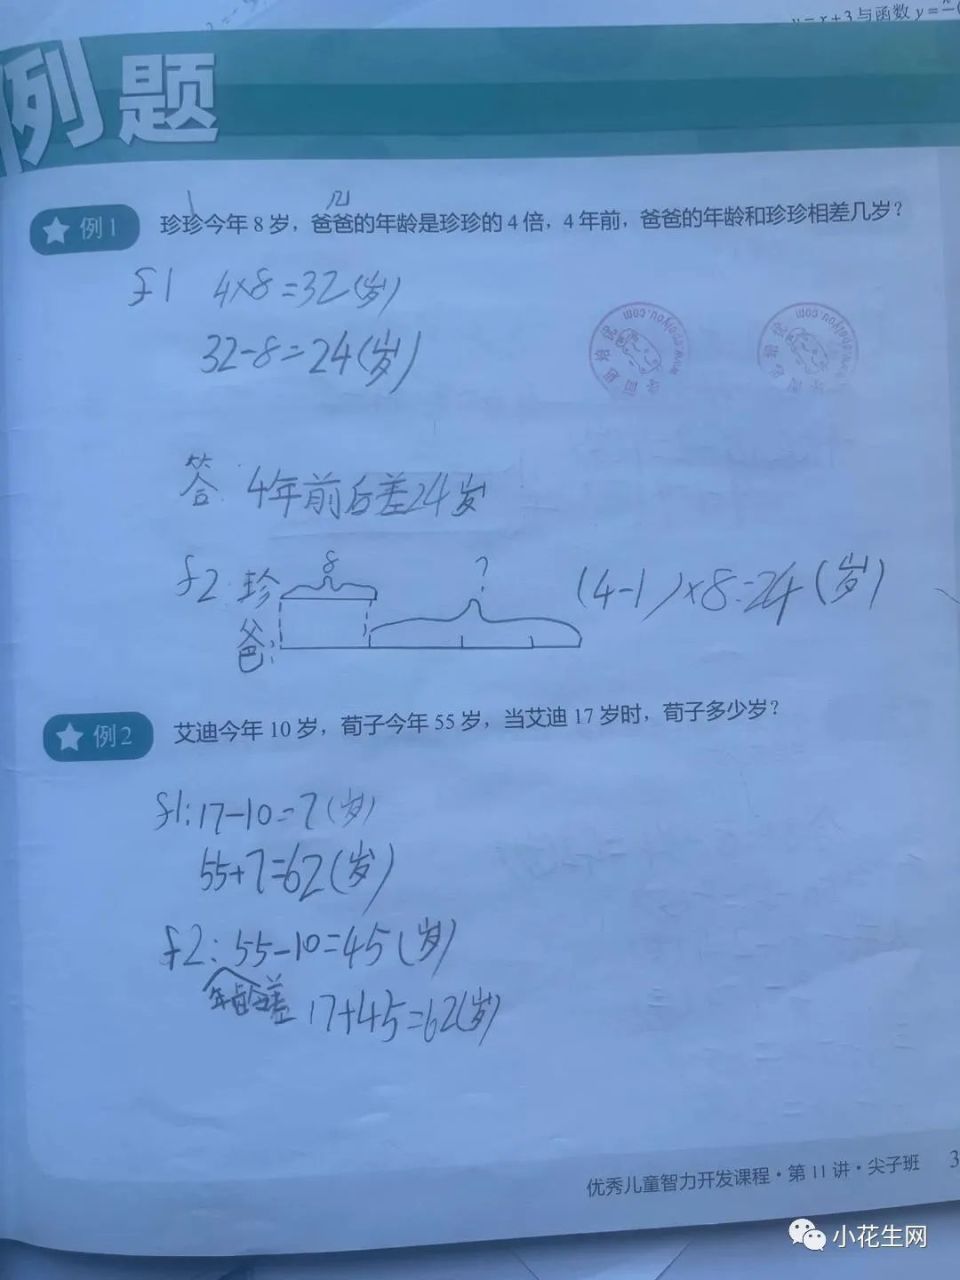 与函数 y =
例题
例1 珍珍今年 8 岁，爸爸的年龄是珍珍的 4 倍，4 年前，爸爸的年龄和珍珍相差几岁？
f1 4×8=32(岁)
32-8=24(岁)
答: 4年前后差24岁
8
?
f2: 珍
爸:
(4-1)×8=24(岁)
例2 艾迪今年 10 岁，荀子今年 55 岁，当艾迪 17 岁时，荀子多少岁？
f1: 17-10=7(岁)
55+7=62(岁)
f2: 55-10=45(岁)
年龄差
17+45=62(岁)
优秀儿童智力开发课程·第 11 讲·尖子班 3
小花生网